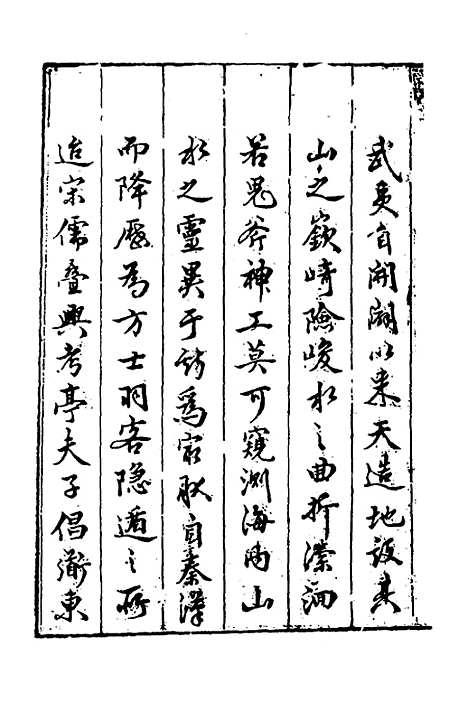 武夷自開闢以來天造地設其
山之嶔崎險峻水之曲折瀠洄
若鬼斧神工莫可窺測海內山
水之靈異于斯爲最肰自秦漢
而降屢為方士羽客隐遁之所
迨宋儒疊興考亭夫子倡衟東